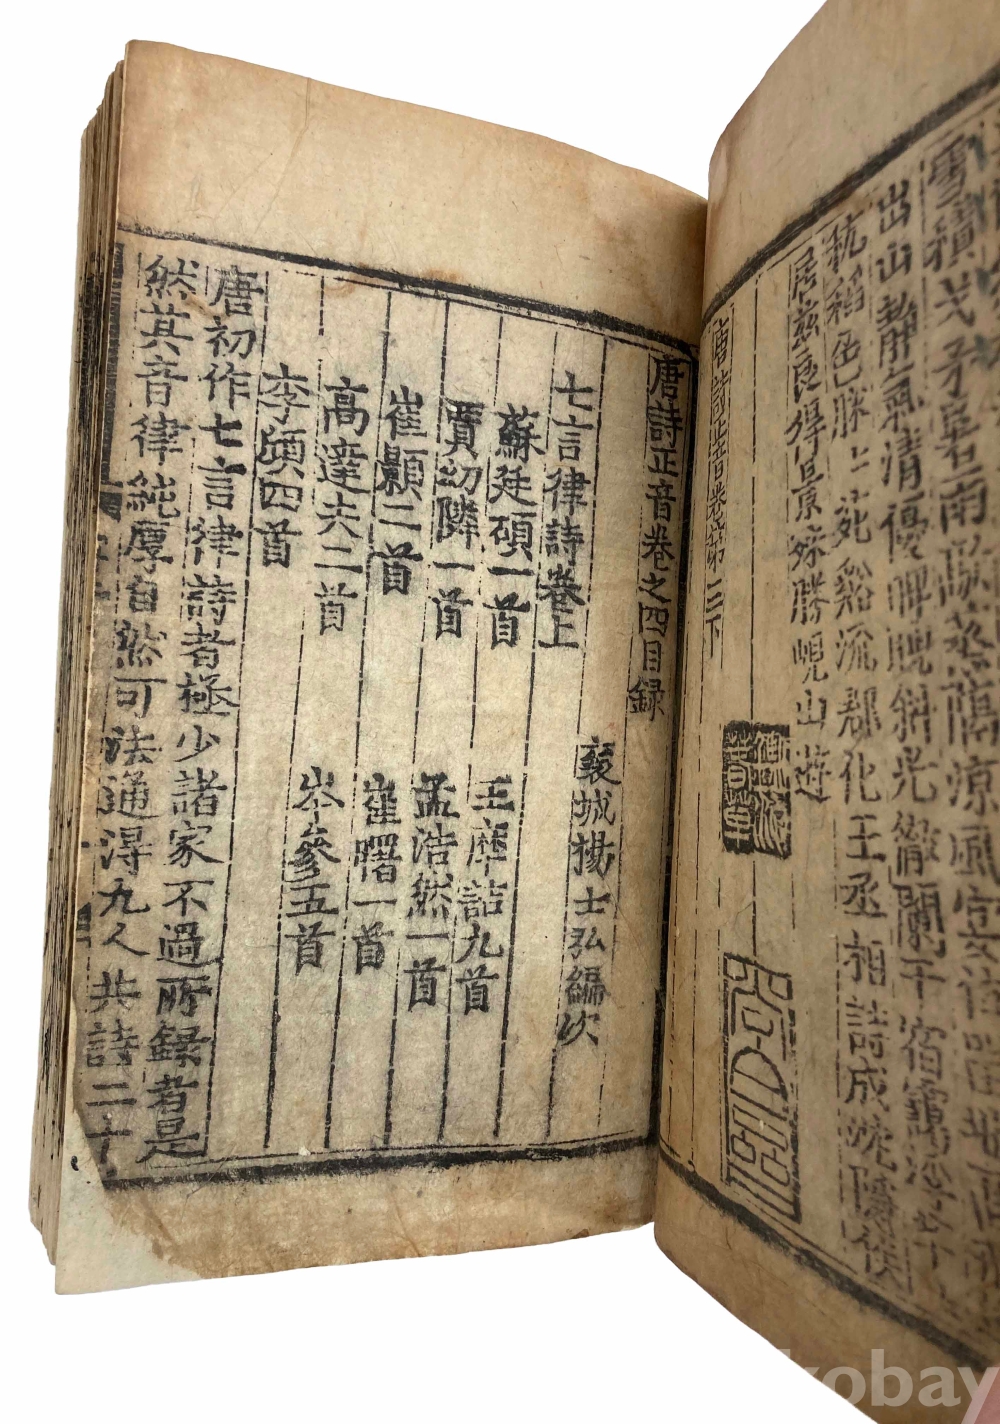 出山静氣清優睥睨斜光徹闌干宿靄浮
秔稻色脒上苑谿流郡化王丞相詩成沈隱侯
居茲良得景殊勝峴山遊
唐詩正音卷第三下
唐詩正音卷之四目録
襄城揚士弘編次
七言律詩卷上
蘇廷碩一首 王摩詰九首
賈幼隣一首 孟浩然一首
崔顥二首 崔曙一首
高達夫二首 岑參五首
李頎四首
唐初作七言律詩者極少諸家不過所録者是
然其音律純厚自然可法通得九人共詩二十
kobay